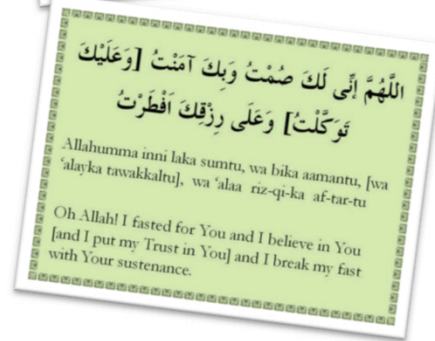 اللَّهُمَّ إِنِّى لَكَ صُمْتُ وَبِكَ آمَنْتُ [وَعَلَيْكَ
تَوَكَّلْتُ] وَعَلَى رِزْقِكَ اَفْطَرْتُ
Allahumma inni laka sumtu, wa bika aamantu, [wa
‘alayka tawakkaltu], wa ‘alaa riz-qi-ka af-tar-tu
Oh Allah! I fasted for You and I believe in You
[and I put my Trust in You] and I break my fast
with Your sustenance.